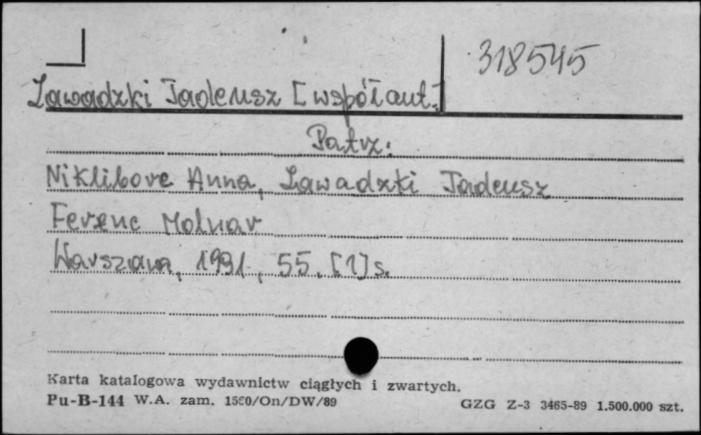 318545
Zawadzki Tadeusz [współaut.]
Patrz:
Niklibore Anna, Zawadzki Tadeusz
Ferenc Molnar
Warszawa, 1991, 55, [1] s.
Karta katalogowa wydawnictw ciągłych i zwartych.
Pu-B-144 W.A. zam. 1580/On/DW/89 GZG Z-3 3465-89 1.500.000 szt.